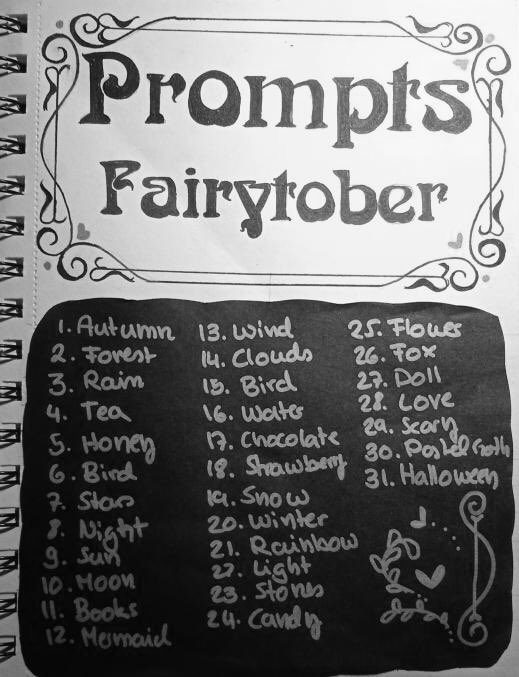 Prompts
Fairytober
1. Autumn
2. Forest
3. Rain
4. Tea
5. Honey
6. Bird
7. Stars
8. Night
9. Sun
10. Moon
11. Books
12. Mermaid
13. Wind
14. Clouds
15. Bird
16. Water
17. Chocolate
18. Strawberry
19. Snow
20. Winter
21. Rainbow
22. Light
23. Stones
24. Candy
25. Flower
26. Fox
27. Doll
28. Love
29. Scary
30. Pastel Goth
31. Halloween